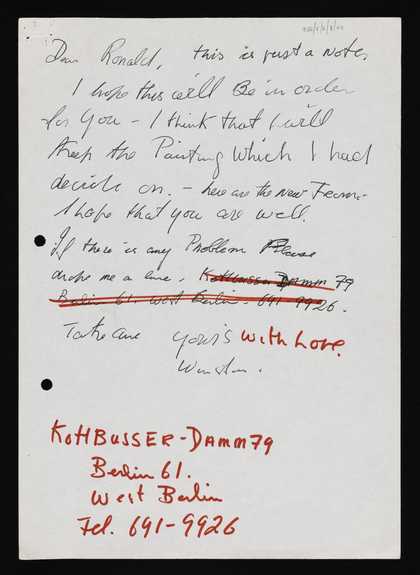 Dear Ronald, this is just a note,
I hope this will Be in order
for You - I think that I will
Keep the Painting Which I had
decide on. - here are the New
I hope that you are well.
If there is any Problem Please
drope me a line. KottBusser Damm 79
Berlin 61. West Berlin. 691 9926.
Take care yours With Love.
Winston.
KottBUSSER-DAMM 79
Berlin 61.
West Berlin
Tel. 691-9926